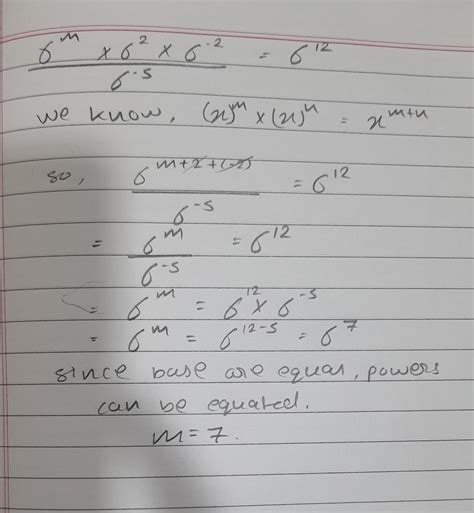 6^m × 6^2 × 6^-2 / 6^-5 = 6^12
we know, (x)^m × (x)^n = x^m+n
so, 6^m+2+(-2) / 6^-5 = 6^12
= 6^m / 6^-5 = 6^12
= 6^m = 6^12 × 6^-5
= 6^m = 6^12-5 = 6^7
since base are equal, powers
can be equated.
m = 7.